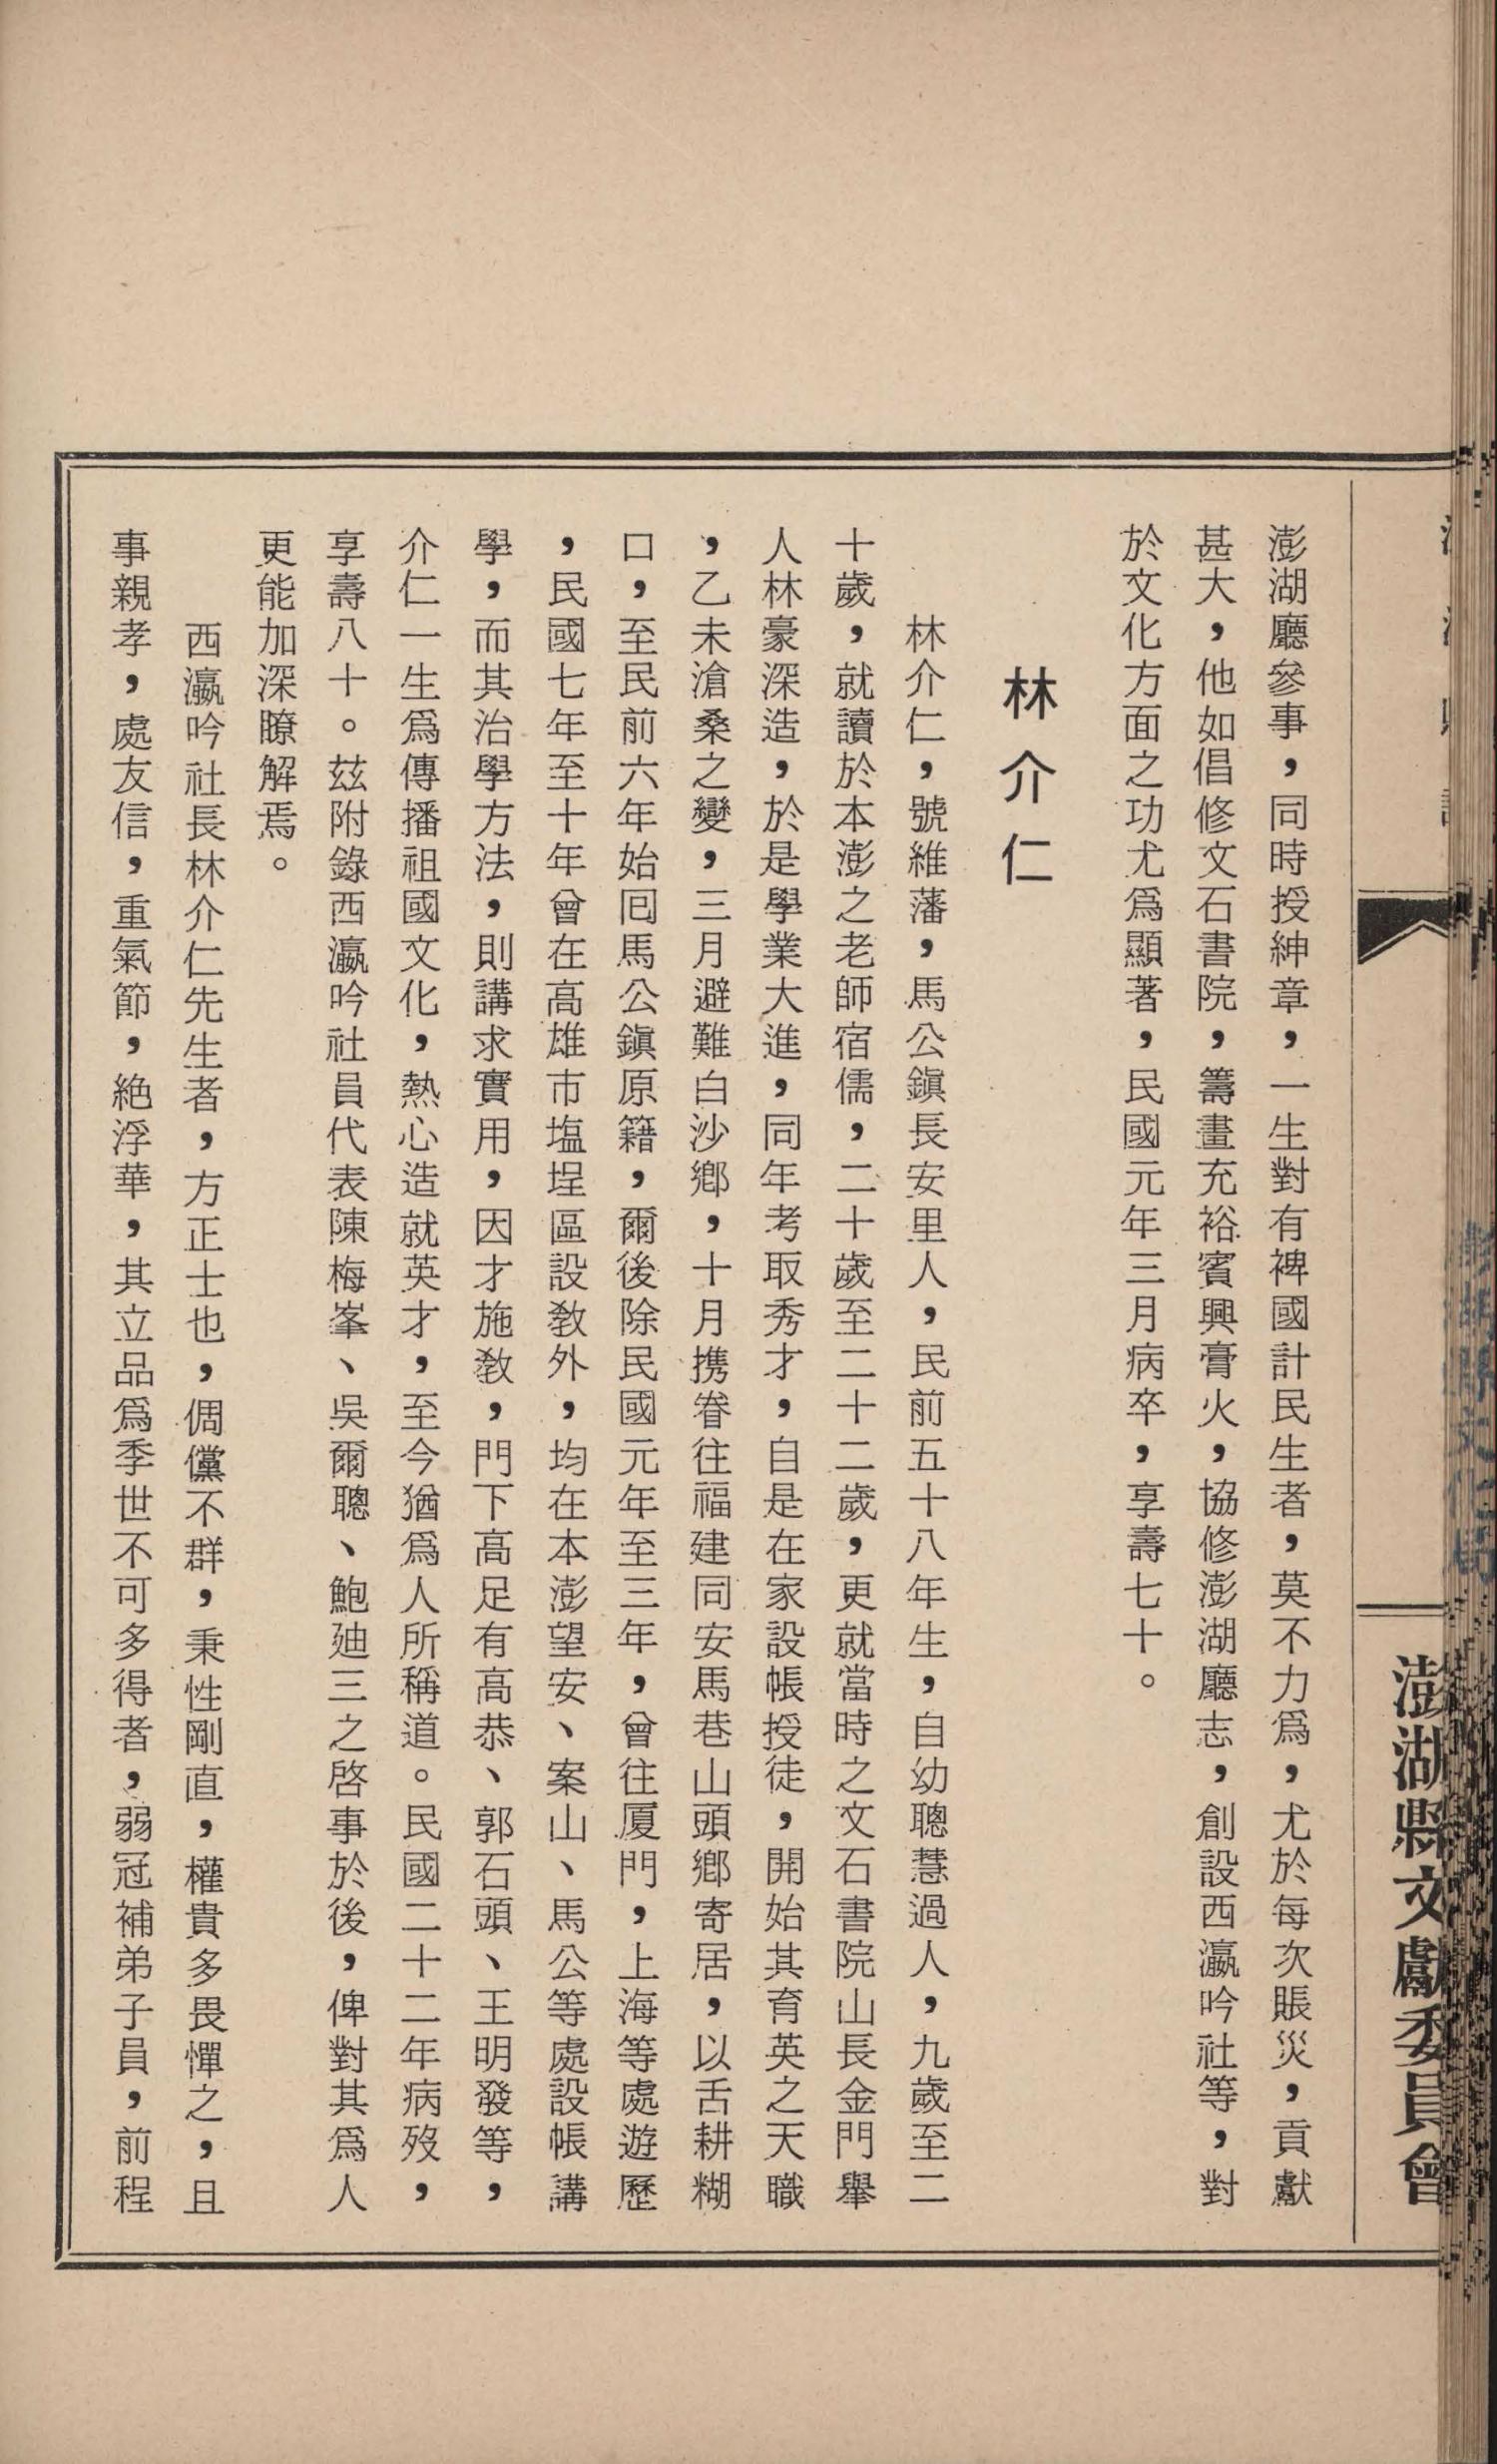 澎湖縣文獻委員會
澎湖廳參事，同時授紳章，一生對有裨國計民生者，莫不力爲，尤於每次賬災，貢獻
甚大，他如倡修文石書院，籌畫充裕賓興膏火，協修澎湖廳志，創設西瀛吟社等，對
於文化方面之功尤爲顯著，民國元年三月病卒，享壽七十。
林介仁
林介仁，號維藩，馬公鎭長安里人，民前五十八年生，自幼聰慧過人，九歲至二
十歲，就讀於本澎之老師宿儒，二十歲至二十二歲，更就當時之文石書院山長金門舉
人林豪深造，於是學業大進，同年考取秀才，自是在家設帳授徒，開始其育英之天職
，乙未滄桑之變，三月避難白沙鄕，十月携眷往福建同安馬巷山頭鄕寄居，以舌耕糊
口，至民前六年始囘馬公鎭原籍，爾後除民國元年至三年，曾往厦門，上海等處遊歷
，民國七年至十年曾在高雄市塩埕區設教外，均在本澎望安、案山、馬公等處設帳講
學，而其治學方法，則講求實用，因才施教，門下高足有高恭、郭石頭、王明發等，
介仁一生爲傳播祖國文化，熱心造就英才，至今猶爲人所稱道。民國二十二年病歿，
享壽八十。茲附錄西瀛吟社員代表陳梅峯、吳爾聰、鮑廸三之啓事於後，俾對其爲人
更能加深瞭解焉。
西瀛吟社長林介仁先生者，方正士也，倜儻不群，秉性剛直，權貴多畏憚之，且
事親孝，處友信，重氣節，絶浮華，其立品爲季世不可多得者，弱冠補弟子員，前程